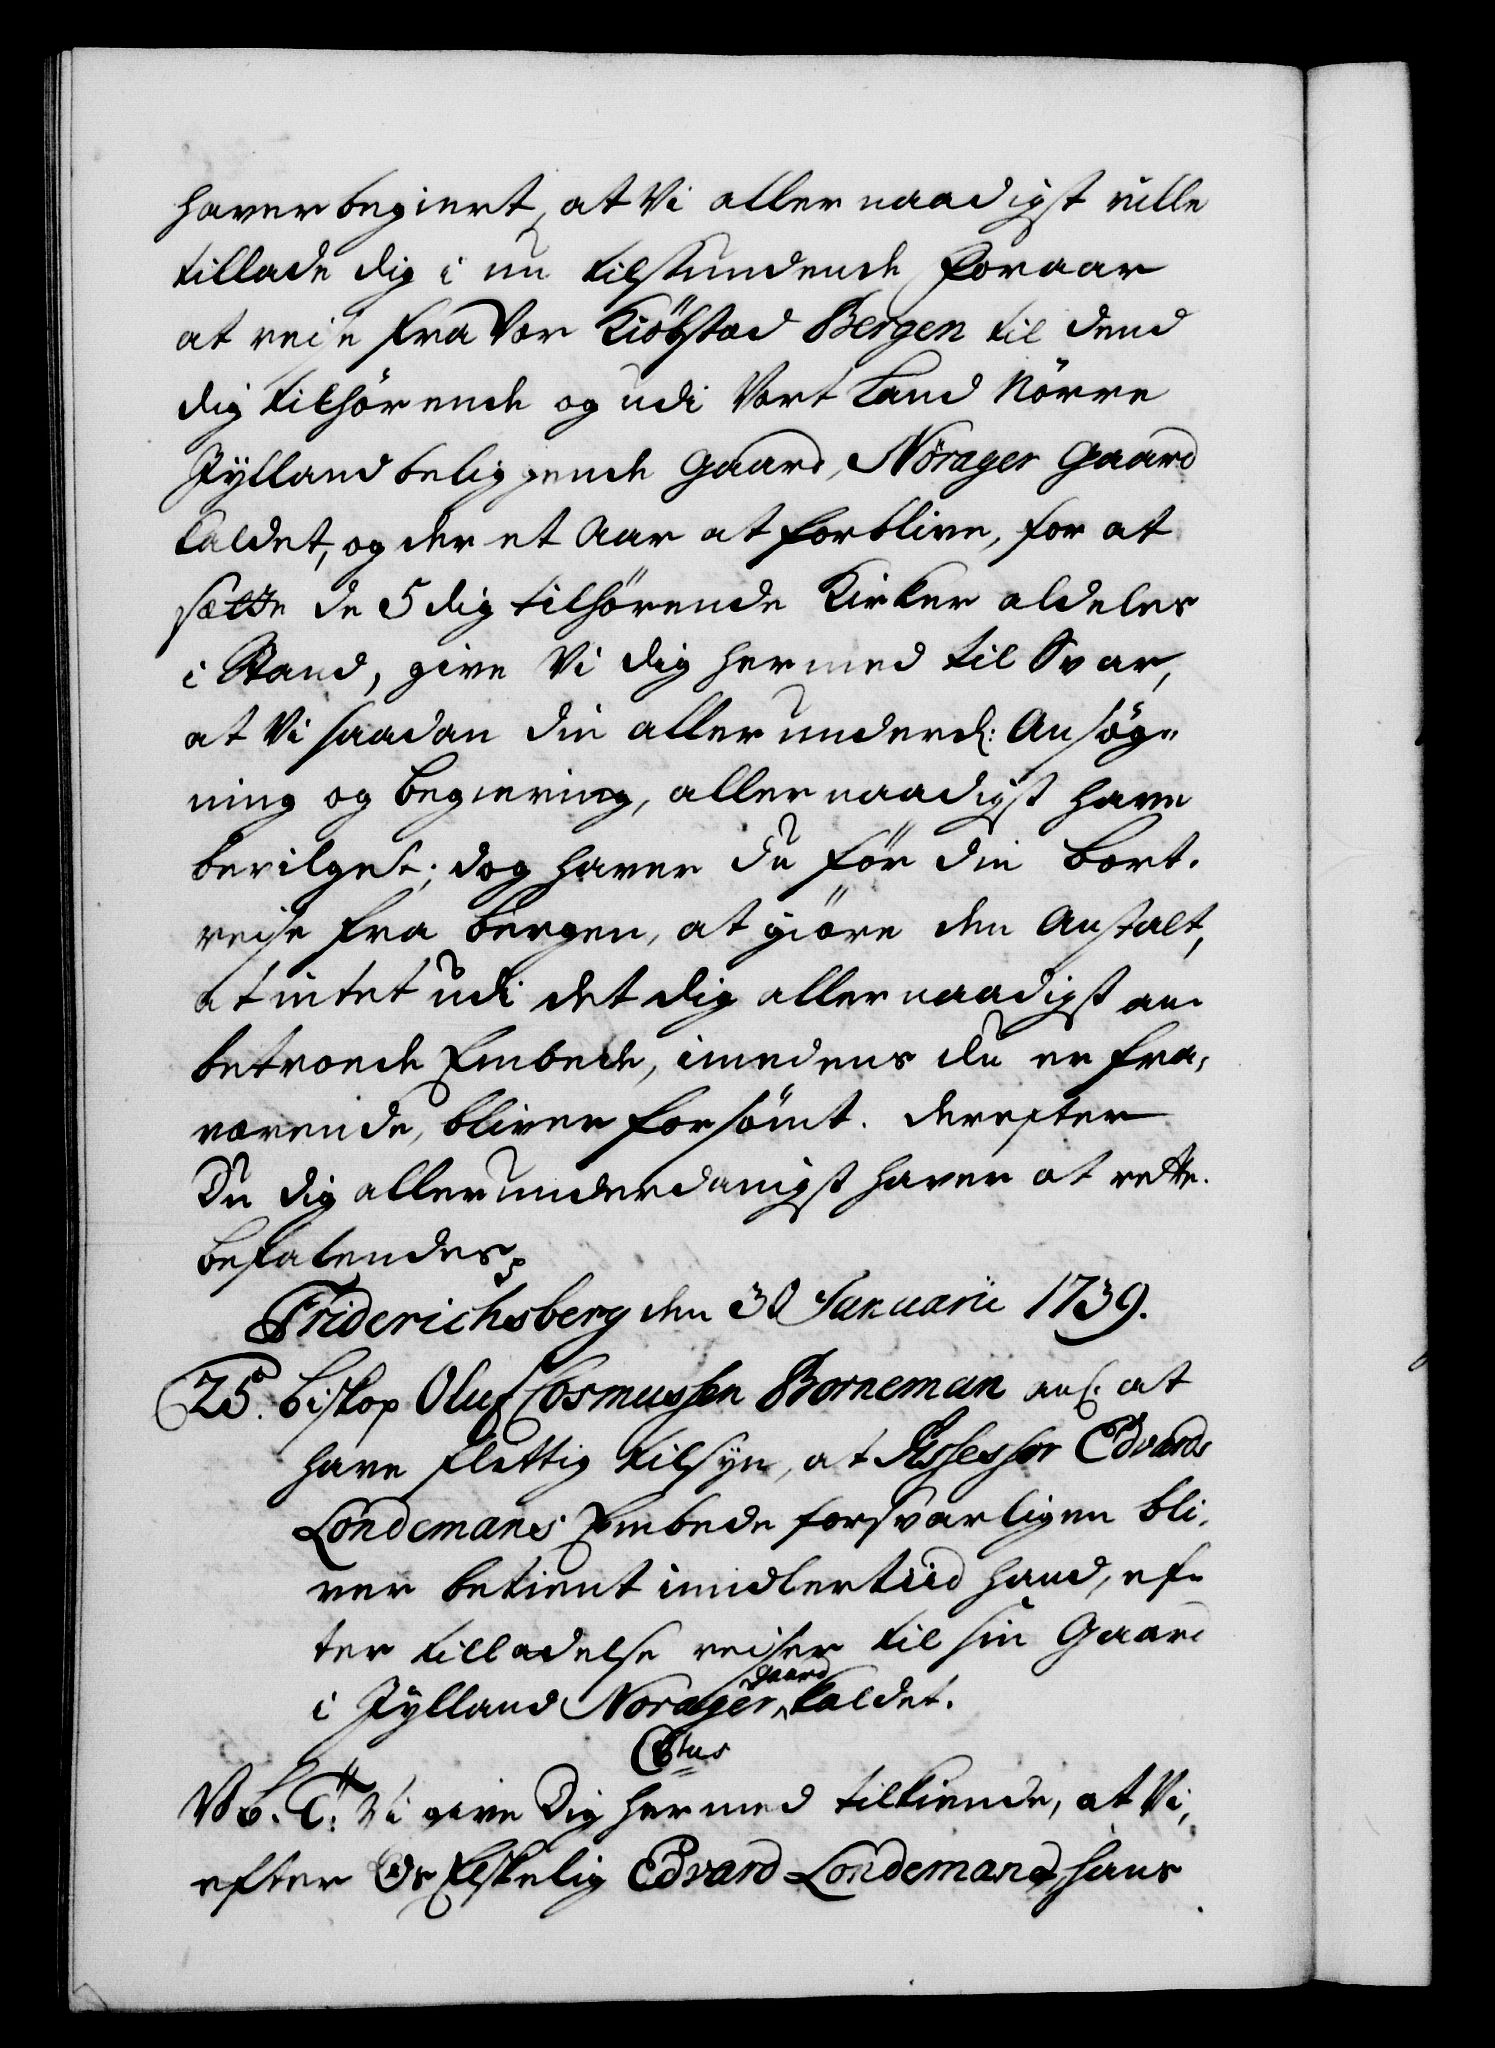 haver begiert, at Vi allernaadigst ville
tillade dig i nu tilstundende Foraar
at reise fra Vor Kiöbstad Bergen til dend
dig tilhörende og udi Vort Land Nörre
Jylland beliggende Gaard, Nörager Gaard
kaldet, og der et Aar at forblive, for at
sætte de 5 dig tilhörende Kirker aldeles
i Stand, give Vi dig hermed til Svar,
at Vi saadan din allerunderd: Ansög-
ning og begiering, allernaadigst have
bevilget; dog haver du för din bort-
reise fra Bergen, at giöre den Anstalt,
at intet udi det dig allernaadigst an-
betroede Embede, imedens du er fra-
værende, bliver forsömt. Derefter
Du dig allerunderdanigst haver at rette.
Befalendes
Friderichsberg den 30 Januarii 1739.
25. Biskop Oluf Cosmussen Borneman anl. at
have flittig tilsyn, at Assessor Edvard
Londemans Embede forsvarligen bli-
ver betient imidlertiid hand, ef-
ter tilladelse reiser til sin Gaard
i Jylland Norager gaard kaldet.
C 6tus
V. G. T. Vi give Dig hermed tilkiende, at Vi,
efter Os Elskelig Edvard Londemand, hans